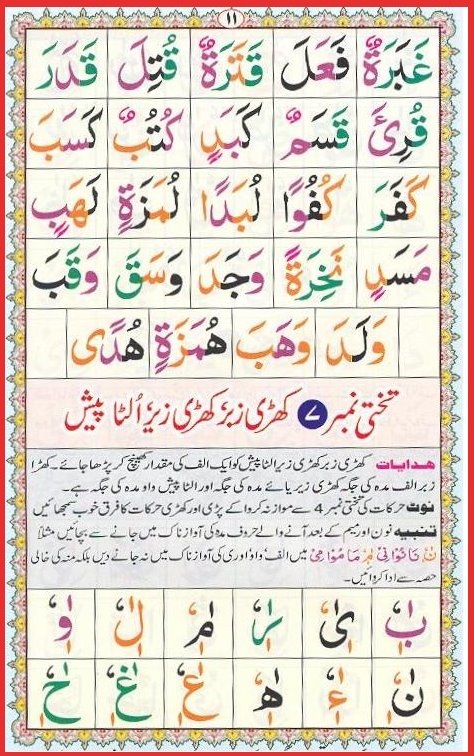 ١١
غَبَرَةٌ فَعَلَ قَتَرَةٌ قُتِلَ قَدَرَ
قُرِئَ قَسَمٌ كَبَدٍ كُتُبٌ كَسَبَ
كَفَرَ كُفُوًا لُبَدًا لُمَزَةٍ لَهَبٍ
مَسَدٍ نَخِرَةً وَجَدَ وَسَقَ وَقَبَ
وَلَدَ وَهَبَ هُمَزَةٍ هُدًى
تختی نمبر ۷ کھڑی زبر کھڑی زیر اُلٹا پیش
ھدایات کھڑی زبر کھڑی زیر الٹا پیش کو ایک الف کی مقدار کھینچ کر پڑھا جائے۔ کھڑا
زبر الف مدہ کی جگہ کھڑی زیر یائے مدہ کی جگہ اور الٹا پیش واو مدہ کی جگہ ہے۔
نوٹ حرکات کی تختی نمبر 4 سے موازنہ کروا کے پڑی اور کھڑی حرکات کا فرق خوب سمجھائیں
تنبیہ نون اور میم کے بعد آنے والے حروف مدہ کی آواز ناک میں جانے سے بچائیں مثلاً
نَا نُوْا نِیْ مَا مُوْا مِیْ میں الف واؤ اور ی کی آواز ناک میں نہ جانے دیں بلکہ منہ کی خالی
حصہ سے ادا کروائیں۔
بٰٖٗ یٰٖٗ رٰٖٗ مٰٖٗ لٰٖٗ وٰٖٗ
نٰٖٗ ءٰٖٗ ھٰٖٗ عٰٖٗ غٰٖٗ حٰٖٗ